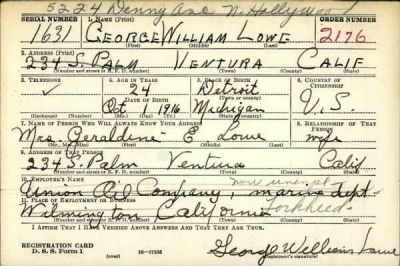 5224 Denny Ave N. Hollywood
SERIAL NUMBER 1. NAME (Print) ORDER NUMBER
1631 GEORGE WILLIAM LOWE 2176
(First) (Middle) (Last)
2. ADDRESS (Print)
234 S. PALM VENTURA CALIF
(Number and street or R. F. D. number) (Town) (County) (State)
3. TELEPHONE 4. AGE IN YEARS 5. PLACE OF BIRTH 6. COUNTRY OF CITIZENSHIP
24 Detroit
DATE OF BIRTH (Town or county)
Oct 1 1916 Michigan U.S.
(Exchange) (No.) (Mo.) (Day) (Yr.) (State or country)
7. NAME OF PERSON WHO WILL ALWAYS KNOW YOUR ADDRESS 8. RELATIONSHIP OF THAT PERSON
Mrs. Geraldine E Lowe wife
(Mr., Mrs., Miss) (First) (Middle) (Last)
9. ADDRESS OF THAT PERSON
234 S. Palm Ventura Calif
(Number and street or R. F. D. number) (Town) (County) (State)
10. EMPLOYER'S NAME
Union Oil Company, marine dept
11. PLACE OF EMPLOYMENT OR BUSINESS
Wilmington California Lockheed
(Number and street or R. F. D. number) (Town) (County) (State)
I AFFIRM THAT I HAVE VERIFIED ABOVE ANSWERS AND THAT THEY ARE TRUE.
REGISTRATION CARD
D. S. S. Form 1 (over) 16-17105 George William Lowe